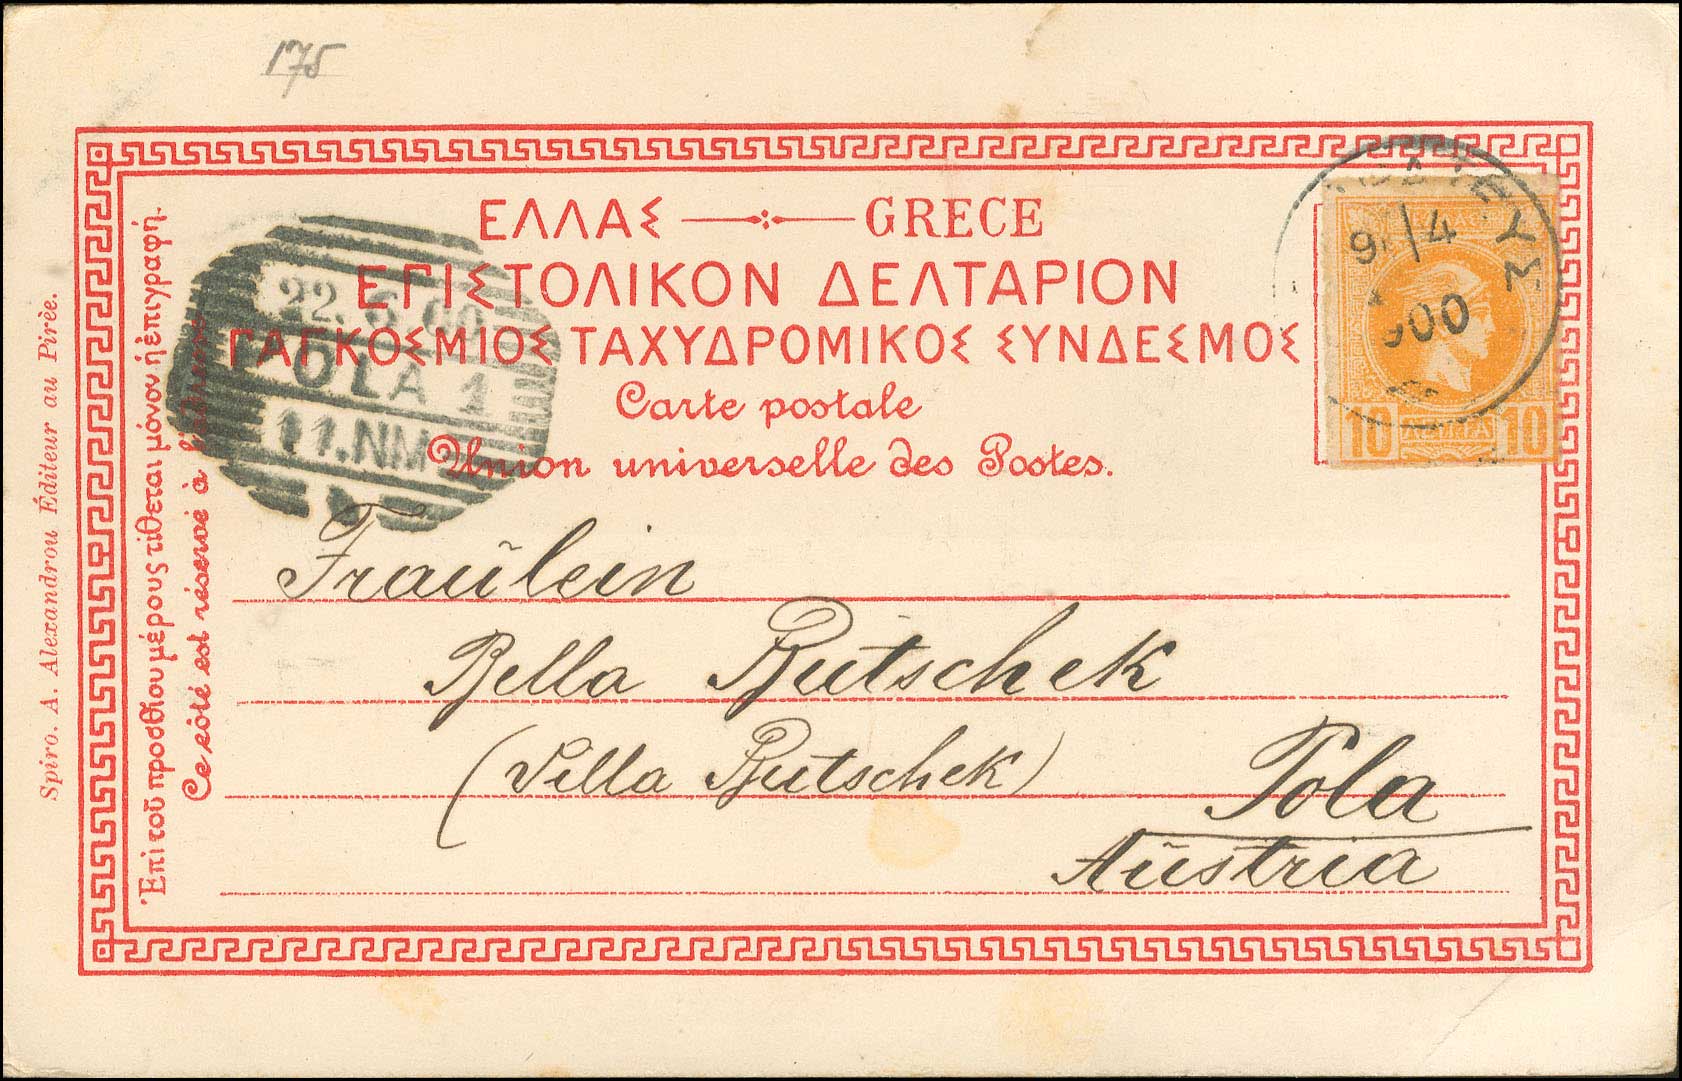 175
ΕΛΛΑΣ GRECE
ΕΠΙΣΤΟΛΙΚΟΝ ΔΕΛΤΑΡΙΟΝ
ΠΑΓΚΟΣΜΙΟΣ ΤΑΧΥΔΡΟΜΙΚΟΣ ΣΥΝΔΕΣΜΟΣ
Carte postale
Union universelle des Postes.
22. 00
POLA 1
11.NM
9 /4
900
10 ΛΕΠΤΑ 10
Fraŭlein
Bella Butschek
(Villa Butschek) Pola
Aŭstria
Ἐπὶ τοῦ προσθίου μέρους τίθεται μόνον ἡ ἐπιγραφή.
Ce côté est réservé à l'adresse
Spiro. A. Alexandrou Éditeur au Pirèe.